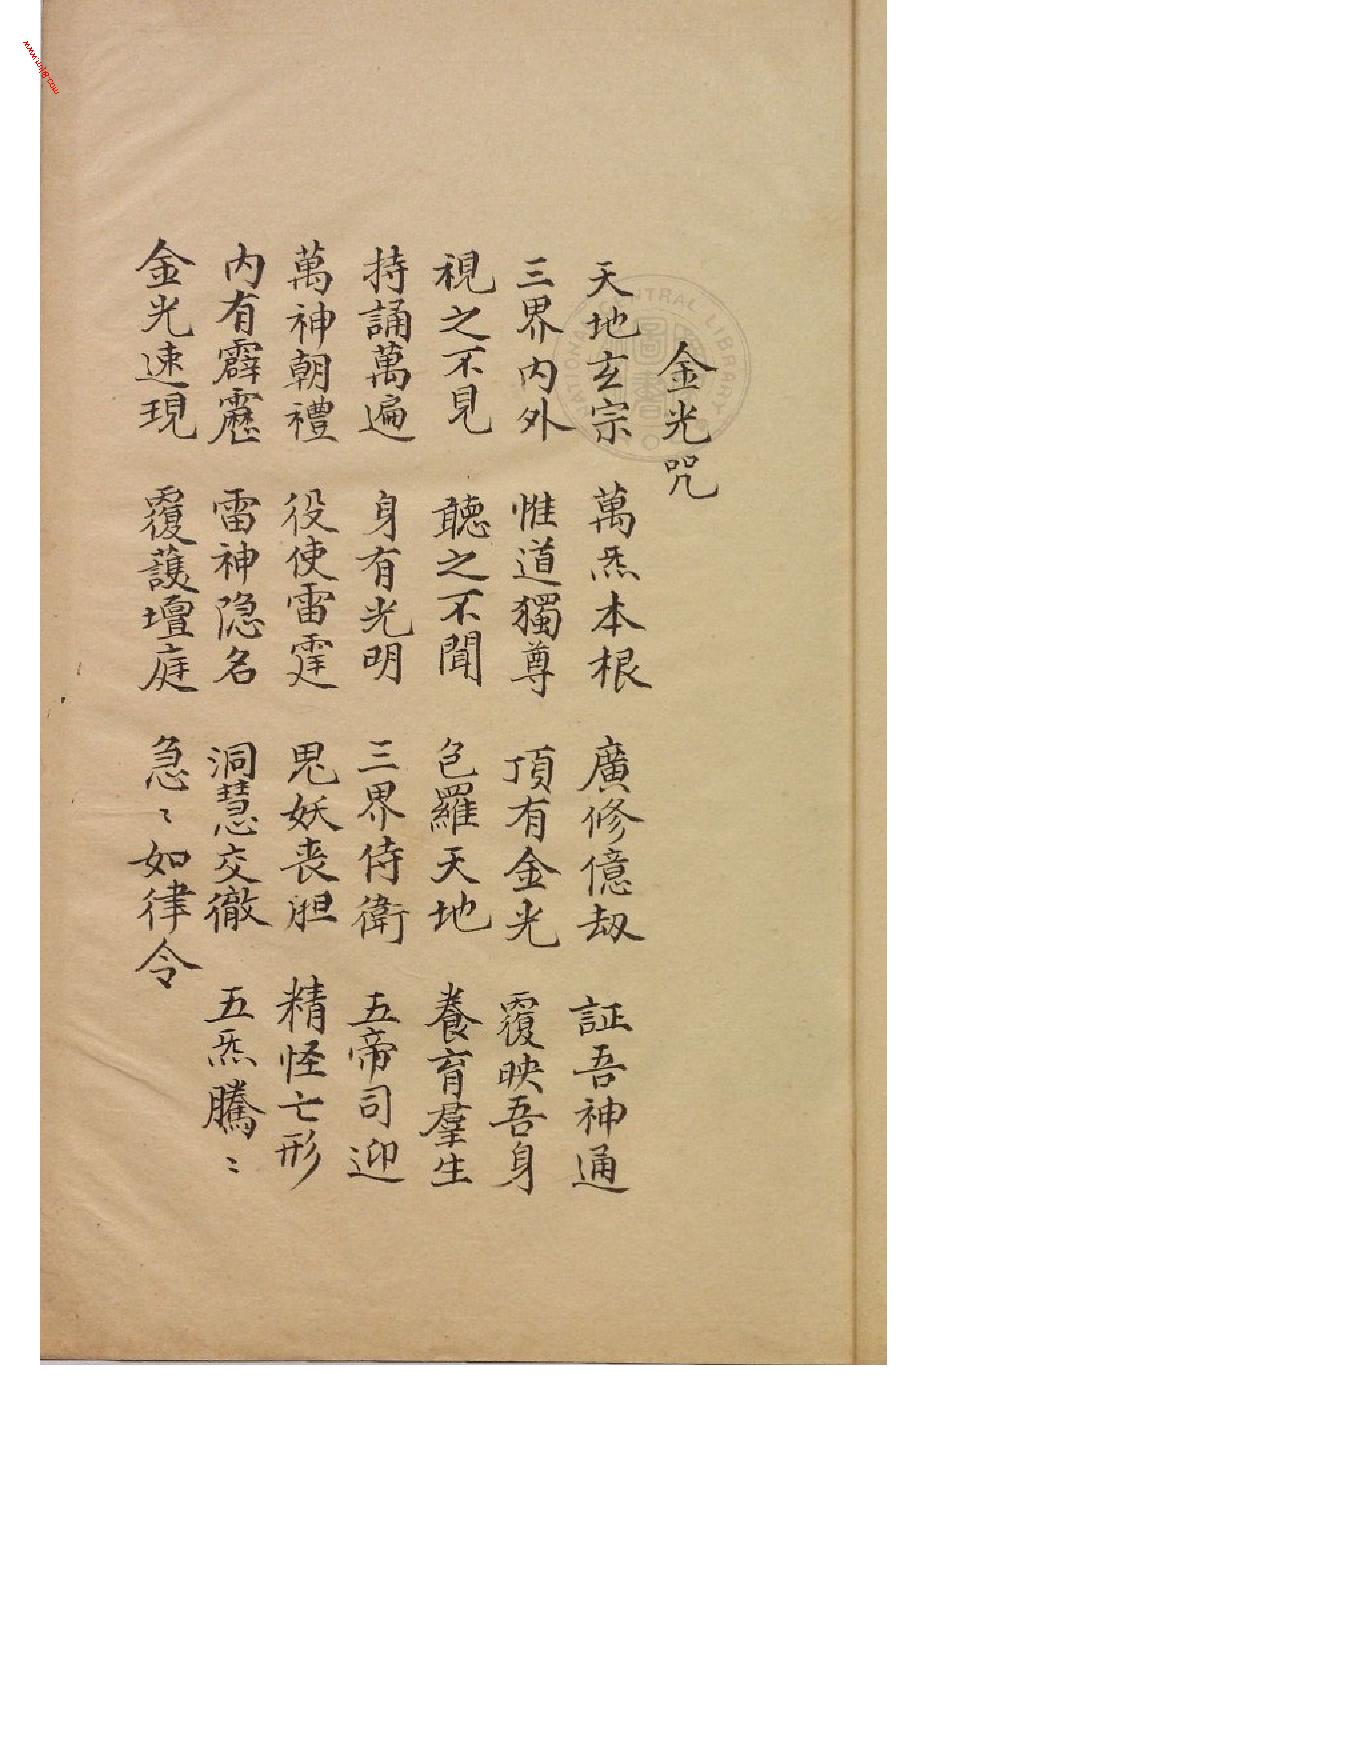 金光咒
天地玄宗 萬炁本根 廣修億劫 証吾神通
三界內外 惟道獨尊 頂有金光 覆映吾身
視之不見 聽之不聞 包羅天地 養育羣生
持誦萬遍 身有光明 三界侍衛 五帝司迎
萬神朝禮 役使雷霆 鬼妖丧胆 精怪亡形
内有霹靂 雷神隐名 洞慧交徹 五炁騰〻
金光速現 覆護壇庭 急〻如律令
NATIONAL CENTRAL LIBRARY